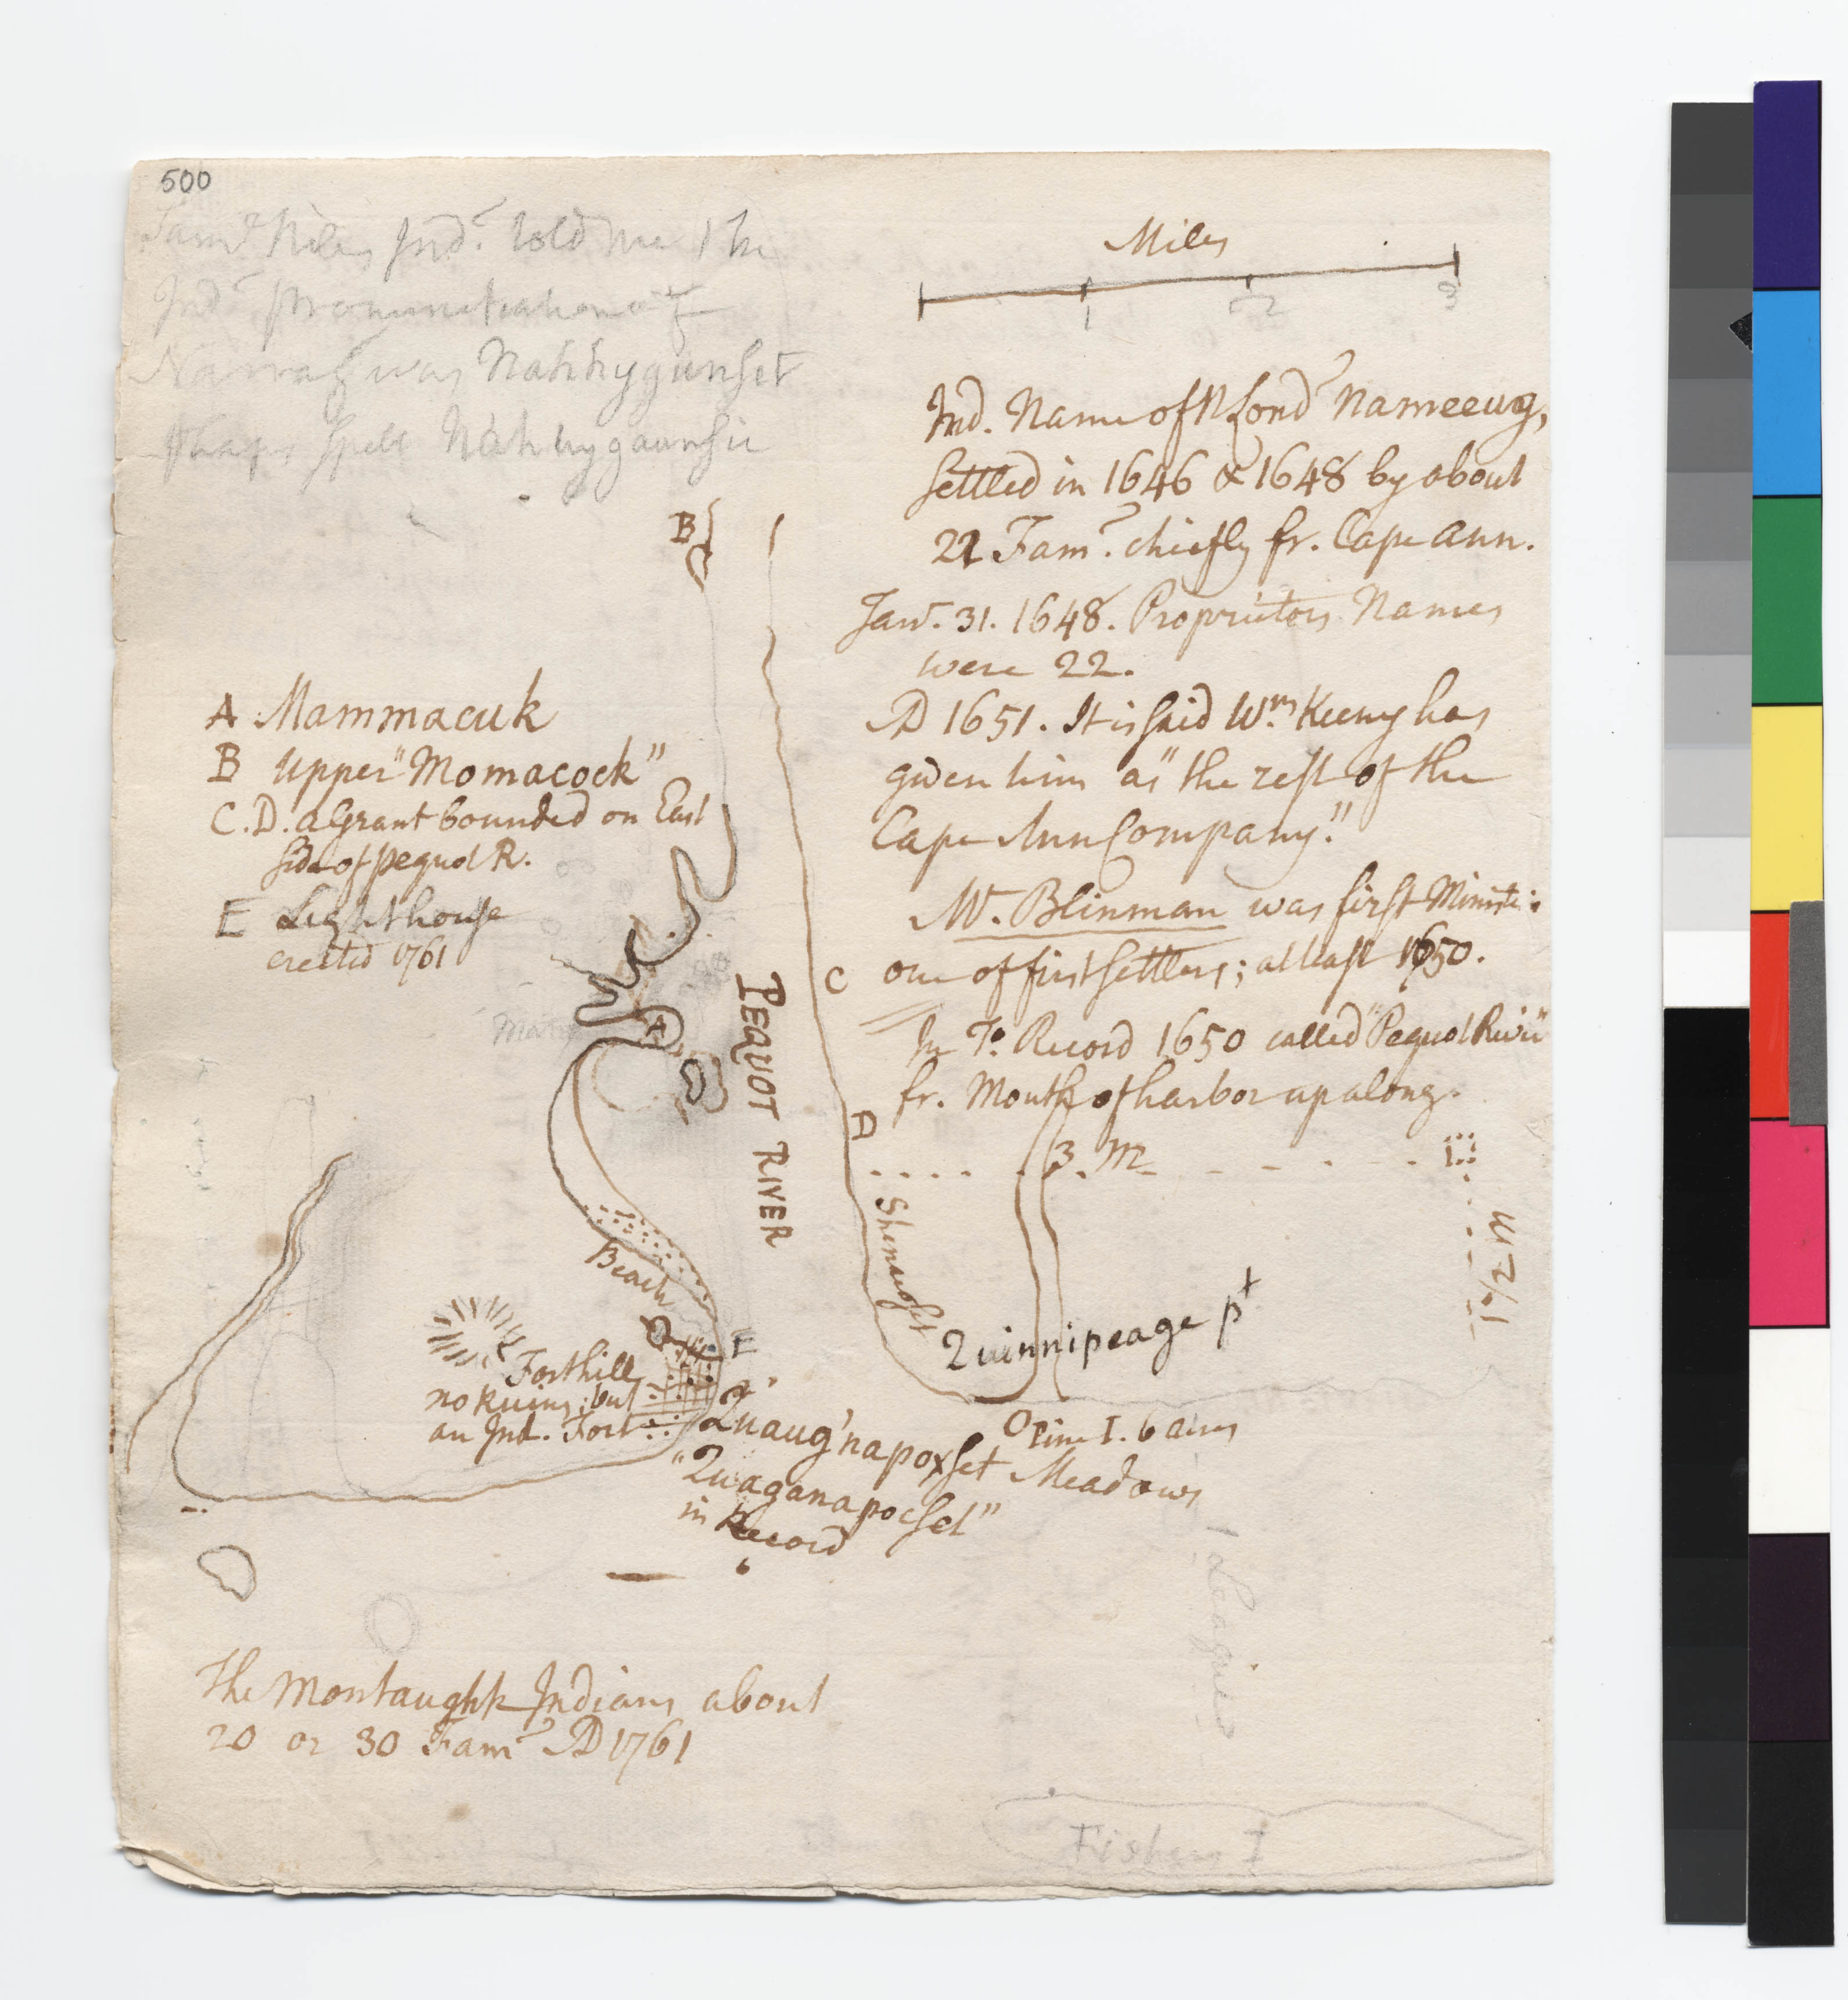 500
Sam.l Niles Ind.n told me the
Ind.n pronunciation of
Narrag was Nahhygunset
phaps spelt Nahhygaunsit
Miles
1 2 3
Ind. Name of N Lond.n Nameeug,
settled in 1646 & 1648 by about
22 Fam.s chiefly fr. Cape Ann.
Jan.y 31. 1648. Proprietors Names
were 22.
AD 1651. It is said W.m Keeny has
given him as "the rest of the
Cape Ann Company."
Mr. Blinman was first Minister
one of first settlers; at least 1650.
In To. Record 1650 called "Pequot River"
fr. Mouth of harbor up along.
B
A Mammacuk
B Upper "Momacock"
C. D. a Grant bounded on East
side of Pequot R.
E Lighthouse
erected 1761
C
A
D
PEQUOT RIVER
3. M
1 1/2 M
Shenauset
Beach
E
Quinnipeage pt
Forthill
no Ruins; but
an Ind. Fort
Quaug'napoxset Meadows
"Quaganapocset"
in Record
Pine I. 6 acres
Leagues
The Montaughk Indians about
20 or 30 Fam.s AD 1761
Fishers I